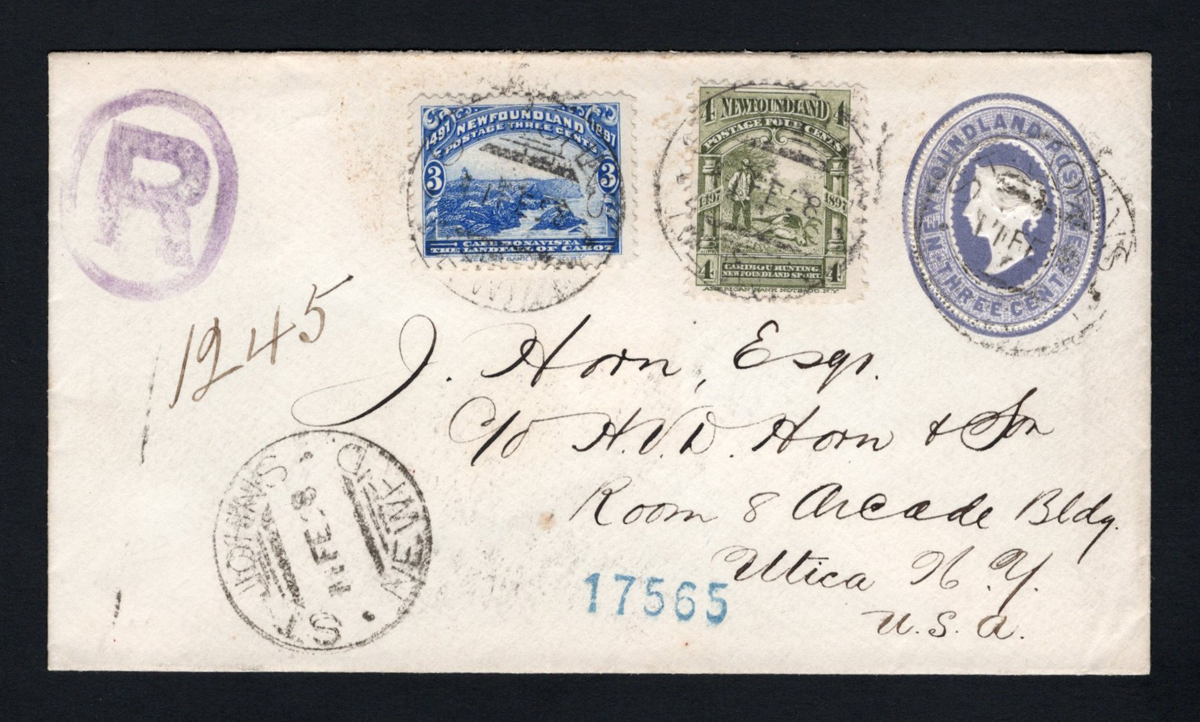 R
1497 1897
NEWFOUNDLAND
POSTAGE THREE CENTS
3 3
CAPE BONAVISTA
THE LANDFALL OF CABOT
4 4
NEWFOUNDLAND
POSTAGE FOUR CENTS
1497 1897
CARIBOU HUNTING.
NEWFOUNDLAND SPORT.
4 4
NEWFOUNDLAND
THREE CENTS
1245
J. Horn, Esqr.
c/o H.V.D. Horn & Son
Room 8 Arcade Bldg.
Utica N.Y.
U.S.A.
ST JOHN'S NEWF'D
FE 8
17565